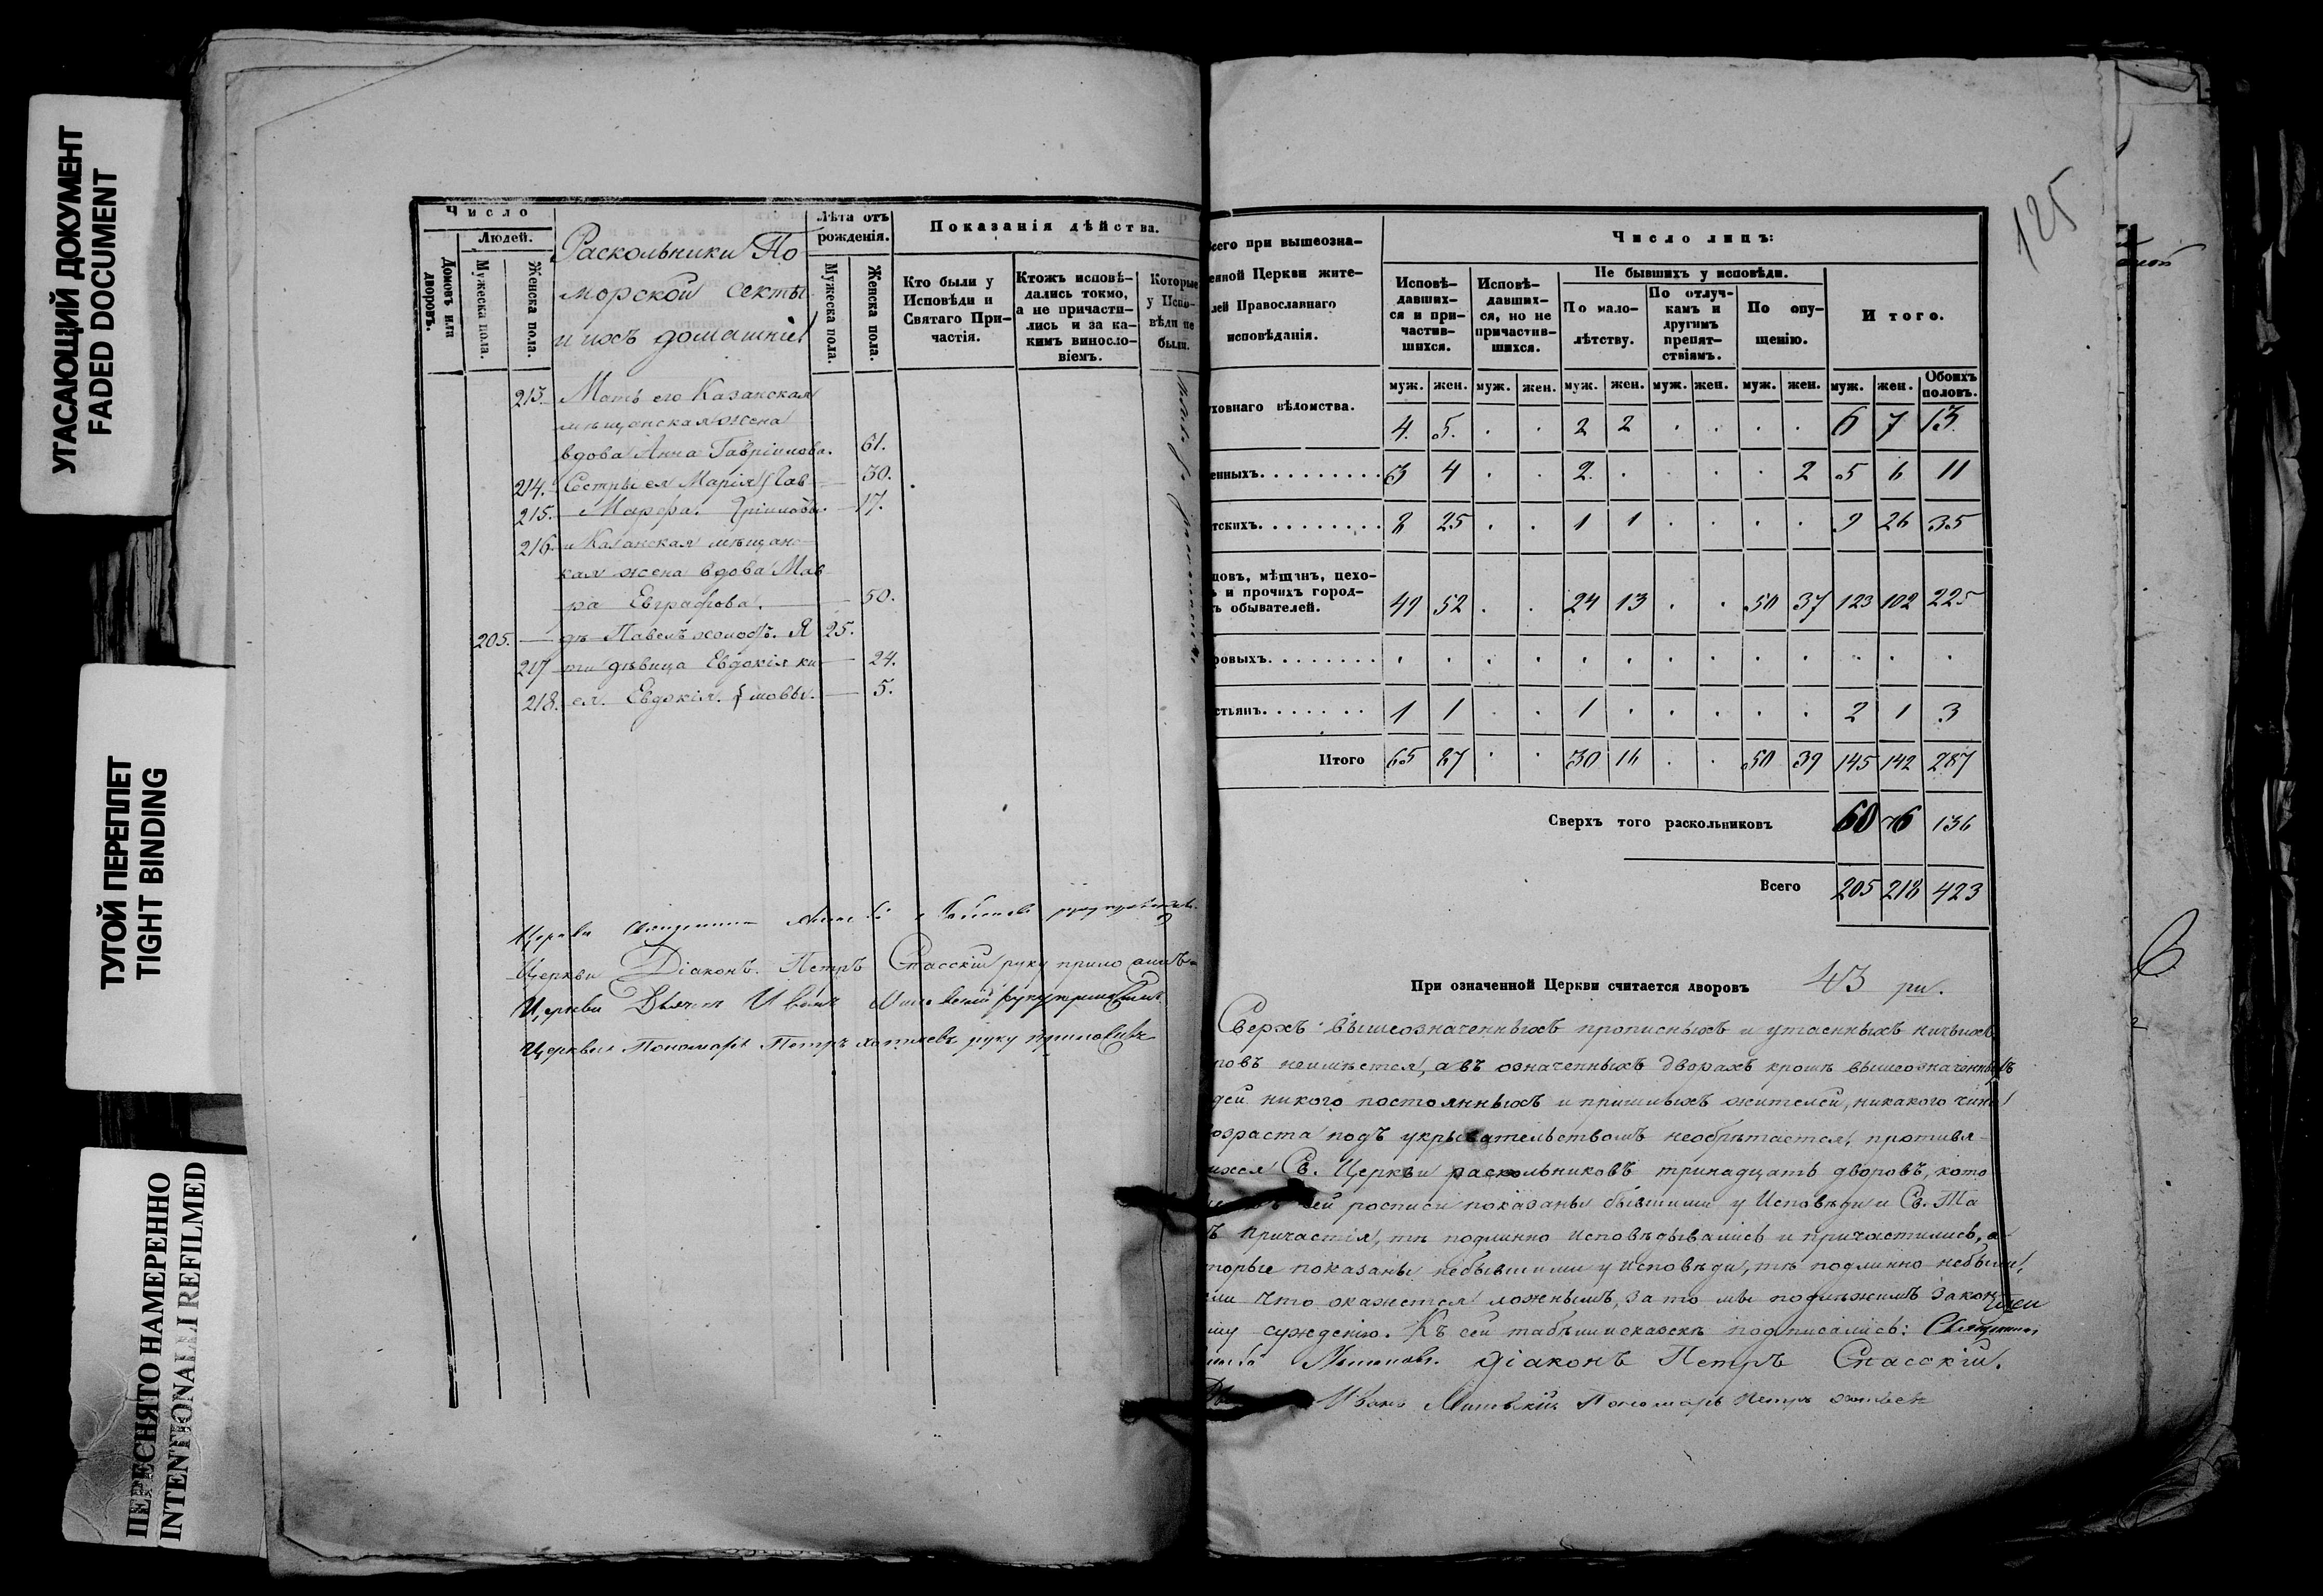 УГАСАЮЩИЙ ДОКУМЕНТ
FADED DOCUMENT
ТУГОЙ ПЕРЕПЛЕТ
TIGHT BINDING
ПЕРЕСНЯТО НАМЕРЕННО
INTENTIONALLI REFILMED
Число
Людей.
Домовъ или дворовъ.
Мужеска пола.
Женска пола.
Раскольники По
морской секты
и ихъ домашніе
Лѣта отъ рожденія.
Мужеска пола.
Женска пола.
Показанія дѣйства.
Кто были у Исповѣди и Святаго Причастія.
Ктожъ исповѣдались токмо, а не причастились и за какимъ винословіемъ.
Которые у Исповѣди не были.
213. Мать его Казанская
мѣщанская жена
вдова Анна Гавріилова. 61.
214. Сестры ея Марія Гав 30.
215. Марѳа. ріиловы. 17.
216. и Казанская мѣщанс
кая жена вдова Мав
ра Евграфова. 50.
205. Павелъ холостъ. Я 25.
217 дѣвица Евдокія ки 24.
218. ея. Евдокія. мовы. 5.
Церкви
Церкви Діаконъ Петръ Спасскій руку приложилъ
Церкви Дьячекъ Иванъ руку приложилъ
Церкви Пономарь Петръ руку приложилъ
125
сего при вышеозна-
енной Церкви жите-
лей Православнаго
исповѣданія.
Число лицъ:
Исповѣдавшихся и причастившихся.
Исповѣдавшихся, но не причастившихся.
Не бывшихъ у исповѣди.
По малолѣтству.
По отлучкамъ и другимъ препятствіямъ.
По опущенію.
И того.
муж. жен. муж. жен. муж. жен. муж. жен. муж. жен. муж. жен. Обоихъ половъ.
уховнаго вѣдомства. 4. 5. . . 2 2 . . . . 6 7 13.
енныхъ. 3 4 . . 2. . . . . 2 5 6 11
тскихъ. 8 25 . . 1 1 . . . . 9 26 35
цовъ, мѣщанъ, цехо-
ъ и прочихъ город-
ъ обывателей. 49 52 . . 24 13 . . 50 37 123 102 225
ровыхъ. . . . . . . . . . . . . .
стьянъ. 1 1 . . 1 . . . . . 2 1 3
Итого 65 87 . . 30 16 . . 50 39 145 142 287
Сверхъ того раскольниковъ 60 76 136
Всего 205 218 423
При означенной Церкви считается дворовъ 43 ри.
Сверхъ вышеозначенныхъ прописныхъ и утаенныхъ ничьихъ
ровъ неимѣется, а въ означенныхъ дворахъ кромѣ вышеозначенныхъ
дей никого постоянныхъ и пришлыхъ жителей, никакого чина
озраста подъ укрывательствомъ необрѣтается, противя
ихся Св. Церкви раскольниковъ тринадцать дворовъ, кото
сей росписи показаны бывшими у Исповѣди и Св. Та
ъ причастія, тѣ подлинно исповѣдывались и причастились, а
торые показаны небывшими у исповѣди, тѣ подлинно небыли,
ли что окажется ложнымъ, за то мы подлежимъ закон
му сужденію. Къ сей табели и скаскѣ подписались: Священникъ
Діаконъ Петръ Спасскій.
Иванъ Пономарь Петръ